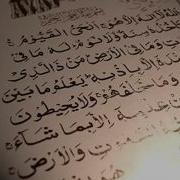 إِلَٰهَ إِلَّا هُوَ الْحَيُّ الْقَيُّومُ
سِنَةٌ وَلَا نَوْمٌ لَهُ مَا فِي
وَمَا فِي الْأَرْضِ مَنْ ذَا الَّذِي
إِلَّا بِإِذْنِهِ يَعْلَمُ مَا بَيْنَ
وَمَا خَلْفَهُمْ وَلَا يُحِيطُونَ
مِنْ عِلْمِهِ إِلَّا بِمَا شَاءَ
السَّمَٰوَٰتِ وَالْأَرْضَ